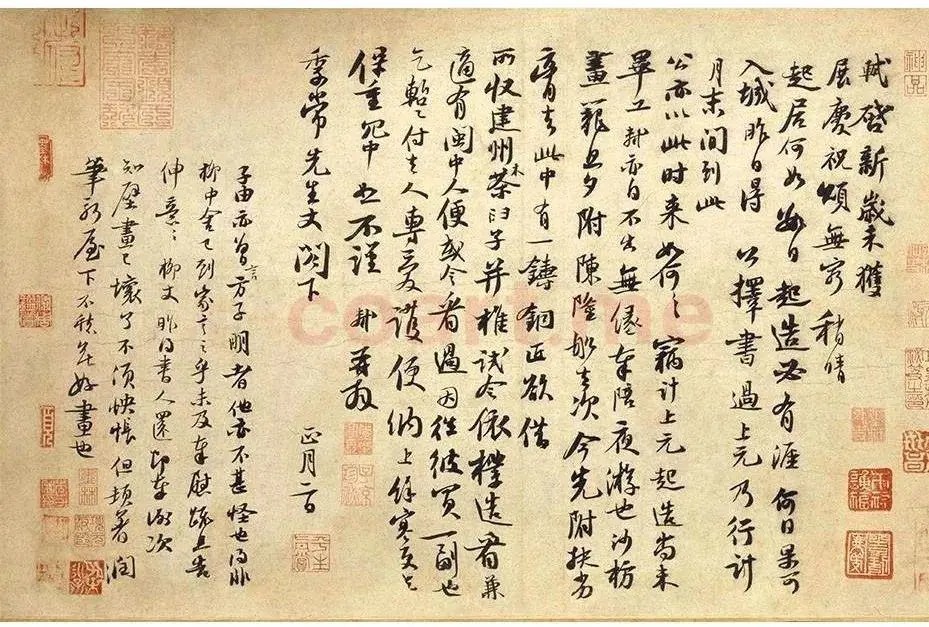 軾啓新歲未獲
展慶祝頌無窮稍晴
起居何如數日起造必有涯何日果可
入城昨日得公擇書過上元乃行計
月末間到此
公亦以此時來如何〻竊計上元起造尚未
畢工軾亦自不出無緣奉陪夜游也沙枋
畫籠旦夕附陳隆船去次今先附扶劣
膏去此中有一鑄銅匠欲借
所收建州木茶臼子并椎試令依樣造看兼
適有閩中人便或令看過因往彼買一副也
乞暫付去人專愛護便納上餘寒更乞
保重冗中恕不謹軾再拜
季常先生丈閤下
正月二日
子由亦曾言方子明者他亦不甚怪也得非
柳中舍已到家言之乎未及奉慰疏且告
伸意〻柳丈昨得書人還即奉謝次
知壁畫已壞了不須怏悵但頓著潤
筆新屋下不愁無好畫也
coart.me